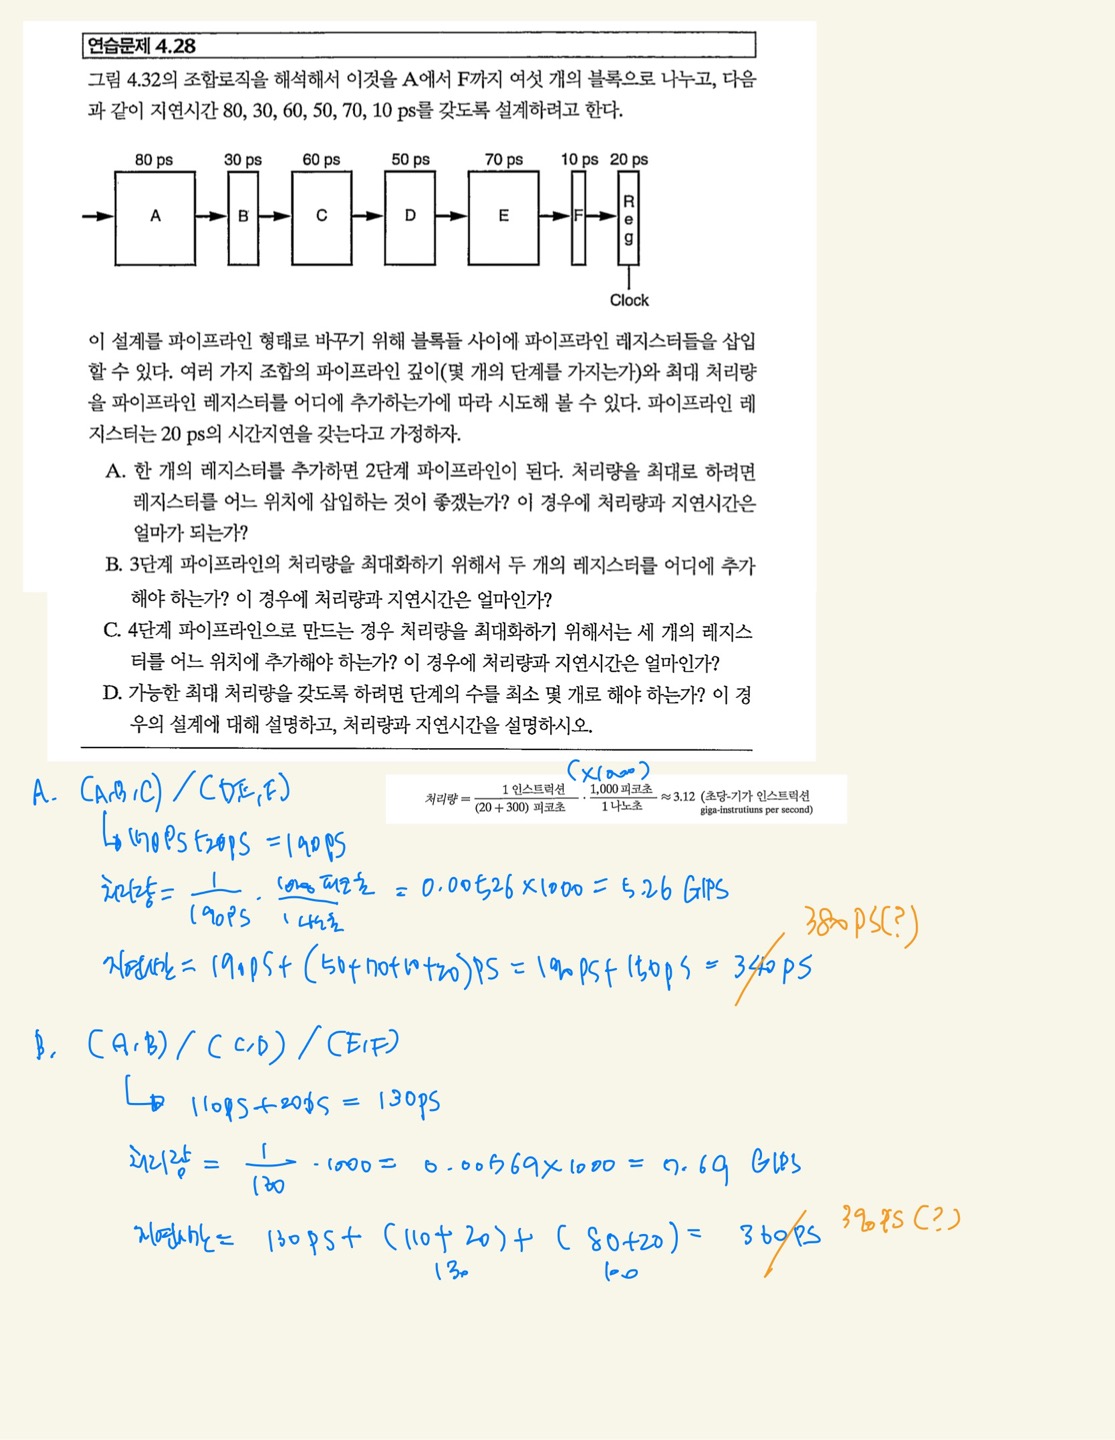 연습문제 4.28
그림 4.32의 조합로직을 해석해서 이것을 A에서 F까지 여섯 개의 블록으로 나누고, 다음
과 같이 지연시간 80, 30, 60, 50, 70, 10 ps를 갖도록 설계하려고 한다.
80 ps 30 ps 60 ps 50 ps 70 ps 10 ps 20 ps
A B C D E F Reg
Clock
이 설계를 파이프라인 형태로 바꾸기 위해 블록들 사이에 파이프라인 레지스터들을 삽입
할 수 있다. 여러 가지 조합의 파이프라인 깊이(몇 개의 단계를 가지는가)와 최대 처리량
을 파이프라인 레지스터를 어디에 추가하는가에 따라 시도해 볼 수 있다. 파이프라인 레
지스터는 20 ps의 시간지연을 갖는다고 가정하자.
A. 한 개의 레지스터를 추가하면 2단계 파이프라인이 된다. 처리량을 최대로 하려면
레지스터를 어느 위치에 삽입하는 것이 좋겠는가? 이 경우에 처리량과 지연시간은
얼마가 되는가?
B. 3단계 파이프라인의 처리량을 최대화하기 위해서 두 개의 레지스터를 어디에 추가
해야 하는가? 이 경우에 처리량과 지연시간은 얼마인가?
C. 4단계 파이프라인으로 만드는 경우 처리량을 최대화하기 위해서는 세 개의 레지스
터를 어느 위치에 추가해야 하는가? 이 경우에 처리량과 지연시간은 얼마인가?
D. 가능한 최대 처리량을 갖도록 하려면 단계의 수를 최소 몇 개로 해야 하는가? 이 경
우의 설계에 대해 설명하고, 처리량과 지연시간을 설명하시오.
A. (A,B,C) / (D,E,F)
(×1000)
처리량 = 1 인스트럭션 / (20 + 300) 피코초 · 1,000 피코초 / 1 나노초 ≈ 3.12 (초당-기가 인스트럭션
giga-instrutiuns per second)
↳ 170ps+20ps = 190ps
처리량 = 1 / 190ps · 1000 피코초 / 1 나노초 = 0.00526 × 1000 = 5.26 GIPS
380ps(?)
지연시간 = 190ps + (50+70+10+20)ps = 190ps + 150ps = 340ps
B. (A,B) / (C,D) / (E,F)
↳ 110ps+20ps = 130ps
처리량 = 1 / 130 · 1000 = 0.00769 × 1000 = 7.69 GIPS
지연시간 = 130ps + (110+20) + (80+20) = 360ps 390ps(?)
130 100